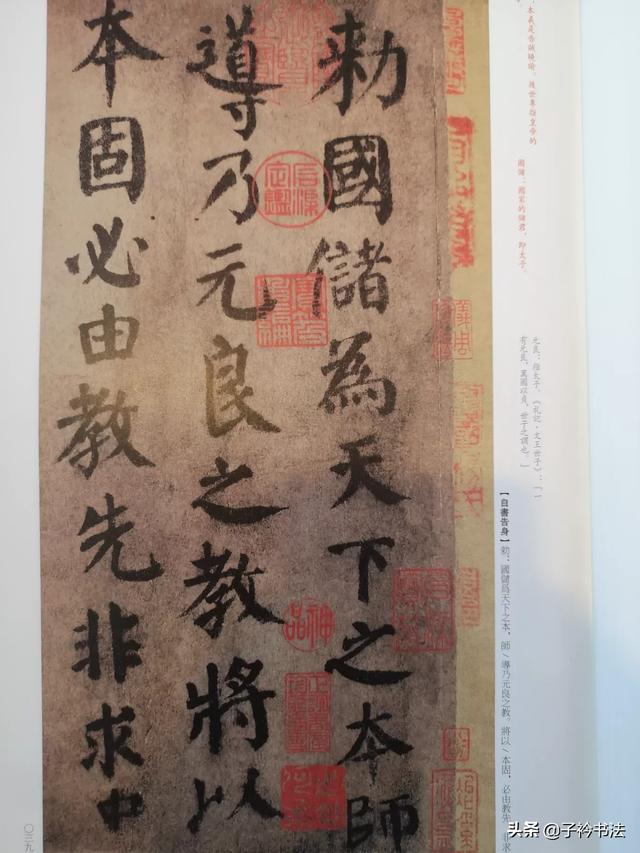 敕國儲為天下之本師
導乃元良之教將以
本固必由教先非求中
，本義是告誡曉諭。後世專指皇帝的
國儲：國家的儲君，即太子。
元良：指太子。《礼記·文王世子》：「一
有元良，萬國以貞，世子之謂也。」
【自書告身】勅：國儲爲天下之本，師／導乃元良之教。將以／本固，必由教先。非求
神品
〇三九
头条@子衿书法